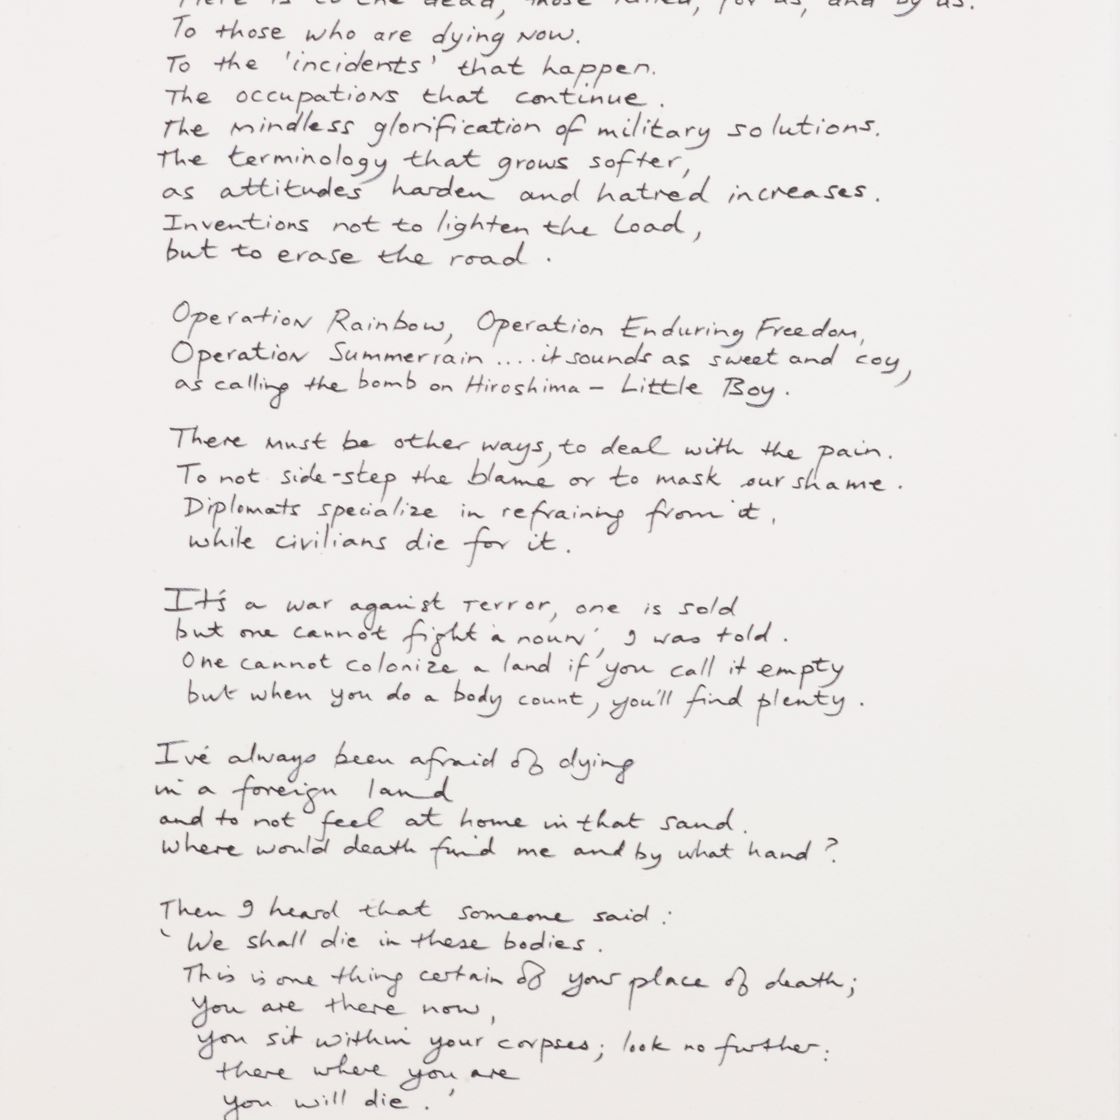 Here is to the dead, those killed, for us, and by us.
To those who are dying now.
To the 'incidents' that happen.
The occupations that continue.
The mindless glorification of military solutions.
The terminology that grows softer,
as attitudes harden and hatred increases.
Inventions not to lighten the load,
but to erase the road.
Operation Rainbow, Operation Enduring Freedom,
Operation Summerrain ....it sounds as sweet and coy,
as calling the bomb on Hiroshima – Little Boy.
There must be other ways, to deal with the pain.
To not side-step the blame or to mask our shame.
Diplomats specialize in refraining from it,
while civilians die for it.
It's a war against terror, one is sold
but one cannot fight 'a noun', I was told.
One cannot colonize a land if you call it empty
but when you do a body count, you'll find plenty.
I've always been afraid of dying
in a foreign land
and to not feel at home in that sand.
Where would death find me and by what hand?
Then I heard that someone said:
'We shall die in these bodies.
This is one thing certain of your place of death;
You are there now,
you sit within your corpses; look no further:
there where you are
you will die.'